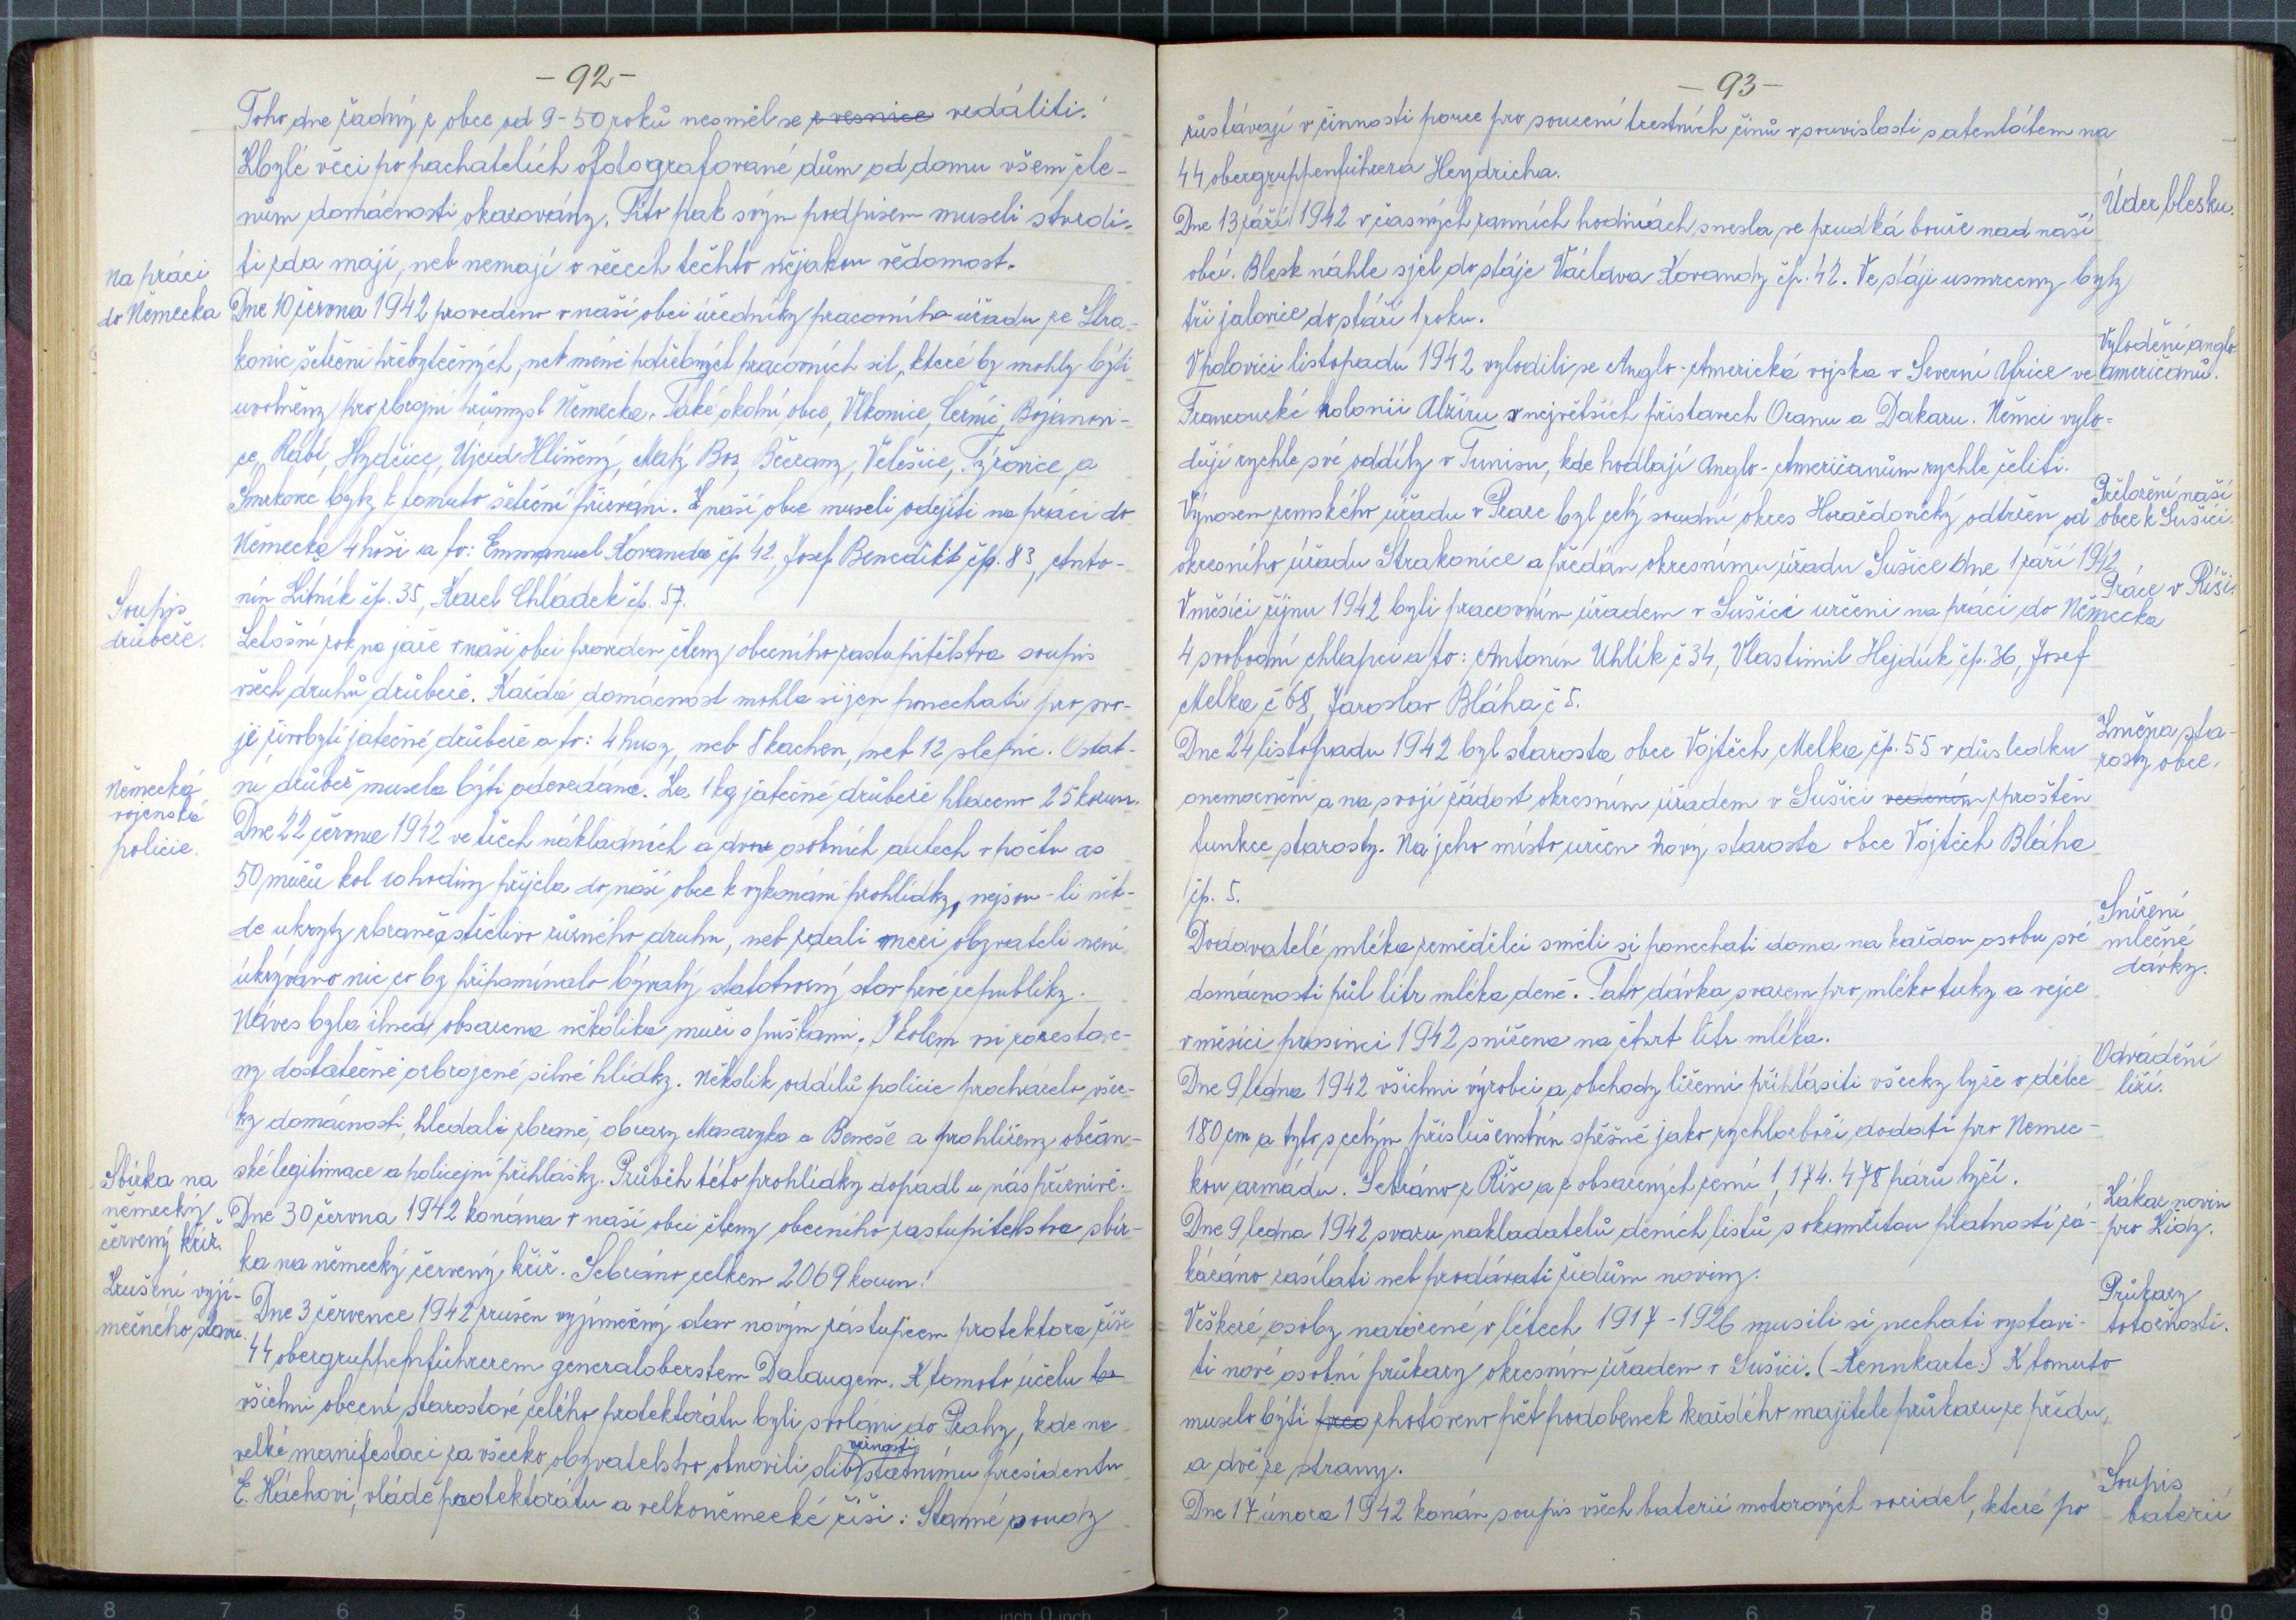 - 92 -
Toho dne žádný z obce od 9-50 roků nesměl se z vesnice vzdáliti.
Zbylé věci po pachatelích ofotografované dům od domu všem čle-
nům domácnosti okazovány. Tito pak svým podpisem museli stvrdi-
ti zda mají, neb nemají o věcech těchto nějakou vědomost.
Na práci
do Německa
Dne 10 června 1942 provedeno v naší obci úředníky pracovního úřadu ze Stra-
konic šetření přebytečných, neb méně potřebných pracovních sil, které by mohly býti
uvolněny pro zbrojní průmysl Německa. Také okolní obce, Vlkonice, Černíč, Bojanovi-
ce, Rábí, Hydčice, Ujezd Hliněný, Malý Bor, Béčany, Velešice, Týřovice, a
Smrkovec byly k tomuto šetření přizváni. Z naší obce museli odejíti na práci do
Německa 4 hoši a to: Emmanuel Kovanda čp 42, Josef Benedikt čp. 83, Anto-
nín Litník čp. 35, Karel Chládek čp. 57.
Soupis
drůbeže.
Letošní rok na jaře v naši obci proveden členy obecního zastupitelstva soupis
všech druhů drůbeže. Každá domácnost mohla si jen ponechati pro svo-
jí živobytí jatečné drůbeže a to: 4 husy, neb 8 kachen, neb 12 slepic. Ostat-
ní drůbež musela býti odevzdána. Za 1 kg jatečné drůbeže placeno 25 korun.
Německá
vojenská
policie.
Dne 22 června 1942 ve třech nákladních a dvou osobních autech v počtu as
50 mužů kol 10 hodiny přijela do naší obce k vykonání prohlídky, nejsou-li něk-
de ukryty zbraně a střelivo různého druhu, neb zdali mezi obyvateli není
ukrýváno nic co by připomínalo bývalý státotvorný stav prvé republiky.
Náves byla ihned obsazena několika muži s puškami. Okolem vsi rozestave-
ny dostatečně ozbrojené silné hlídky. Několik oddílů policie procházelo všec-
ky domácnosti, hledali zbraně, obrazy Masaryka a Beneše a prohlíženy občan-
ské legitimace a policejní přihlášky. Průběh této prohlídky dopadl u nás příznivě.
Sbírka na
německý
červený kříž.
Dne 30 června 1942 konána v naší obci členy obecního zastupitelstva sbír-
ka na německý červený kříž. Sebráno celkem 2069 korun.
Zrušení vyjí-
mečného stavu.
Dne 3 července 1942 zrušen vyjímečný stav novým zástupcem protektora říše
44 obergruppenführerem generaloberstem Dalaugem. K tomoto účelu
všichni obecní starostové celého protektorátu byli svoláni do Prahy, kde na
velké manifestaci za všecko obyvatelstvo obnovili slib věrnosti státnímu presidentu
E. Háchovi, vládě protektorátu a velkoněmecké říši. Stanné soudy
- 93 -
zůstávají v činnosti pouze pro souzení trestních činů v souvislosti s atentátem na
44 obergruppenführera Heydricha.
Úder blesku.
Dne 13 září 1942 v časných ranních hodinách snesla se prudká bouře nad naší
obcí. Blesk náhle sjel do stáje Václava Kovandy čp. 42. Ve stáji usmrceny byly
tři jalovice do stáří 1 roku.
Vylodění anglo
američanů.
V polovici listopadu 1942 vylodili se Anglo-Americká vojska v Severní Africe ve
Francouzké kolonii Alžíru v největších přístavech Oranu a Dakaru. Němci vylo-
ďují rychle své oddíly v Tunisu, kde hodlají Anglo-Američanům rychle čeliti.
Přeložení naší
obce k Sušici.
Výnosem zemského úřadu v Praze byl celý soudní okres Horažďovický odtržen od
okresního úřadu Strakonice a předán okresnímu úřadu Sušice dne 1 září 1942
Práce v Říši.
V měsíci říjnu 1942 byli pracovním úřadem v Sušici určeni na práci do Německa
4 svobodní chlapci a to: Antonín Uhlík č 34, Vlastimil Hejduk čp. 36, Josef
Melka č 68, Jaroslav Bláha č 5.
Změna sta-
rosty obce.
Dne 24 listopadu 1942 byl starosta obce Vojtěch Melka čp. 55 v důsledku
onemocnění a na svoji žádost okresním úřadem v Sušici vedením zproštěn
funkce starosty. Na jeho místo určen nový starosta obce Vojtěch Bláha
čp. 5.
Snížení
mlečné
dávky.
Dodavatelé mléka zemědělci směli si ponechati doma na každou osobu své
domácnosti půl litr mléka deně. Tato dávka svazem pro mléko tuky a vejce
v měsíci prosinci 1942 snížena na čtvrt litr mléka.
Odvádění
liží.
Dne 9 ledna 1942 všichni výrobci a obchody ližemi přihlásiti všecky lyže v délce
180 cm a tyto s celým příslušenstvím spěšně jako rychlozboží dodati pro Němec-
kou armádu. Sebráno z Říše a z obsazených zemí 1,174.478 párů lyží.
Zákaz novin
pro Židy.
Dne 9 ledna 1942 svazu nakladatelů deních listů s okamžitou platností zá-
kázáno zasílati neb prodávati židům noviny.
Průkazy
totožnosti.
Veškeré osoby narozené v létech 1917-1926 musili si nechati vystavi-
ti nové osobní průkazy okresním úřadem v Sušici. (Kennkarte.) K tomuto
muselo býti zhotoveno pět podobenek každého majitele průkazu ze předu,
a dvě ze strany.
Soupis
baterií
Dne 17 února 1942 konán soupis všech baterií motorových vozidel, které po